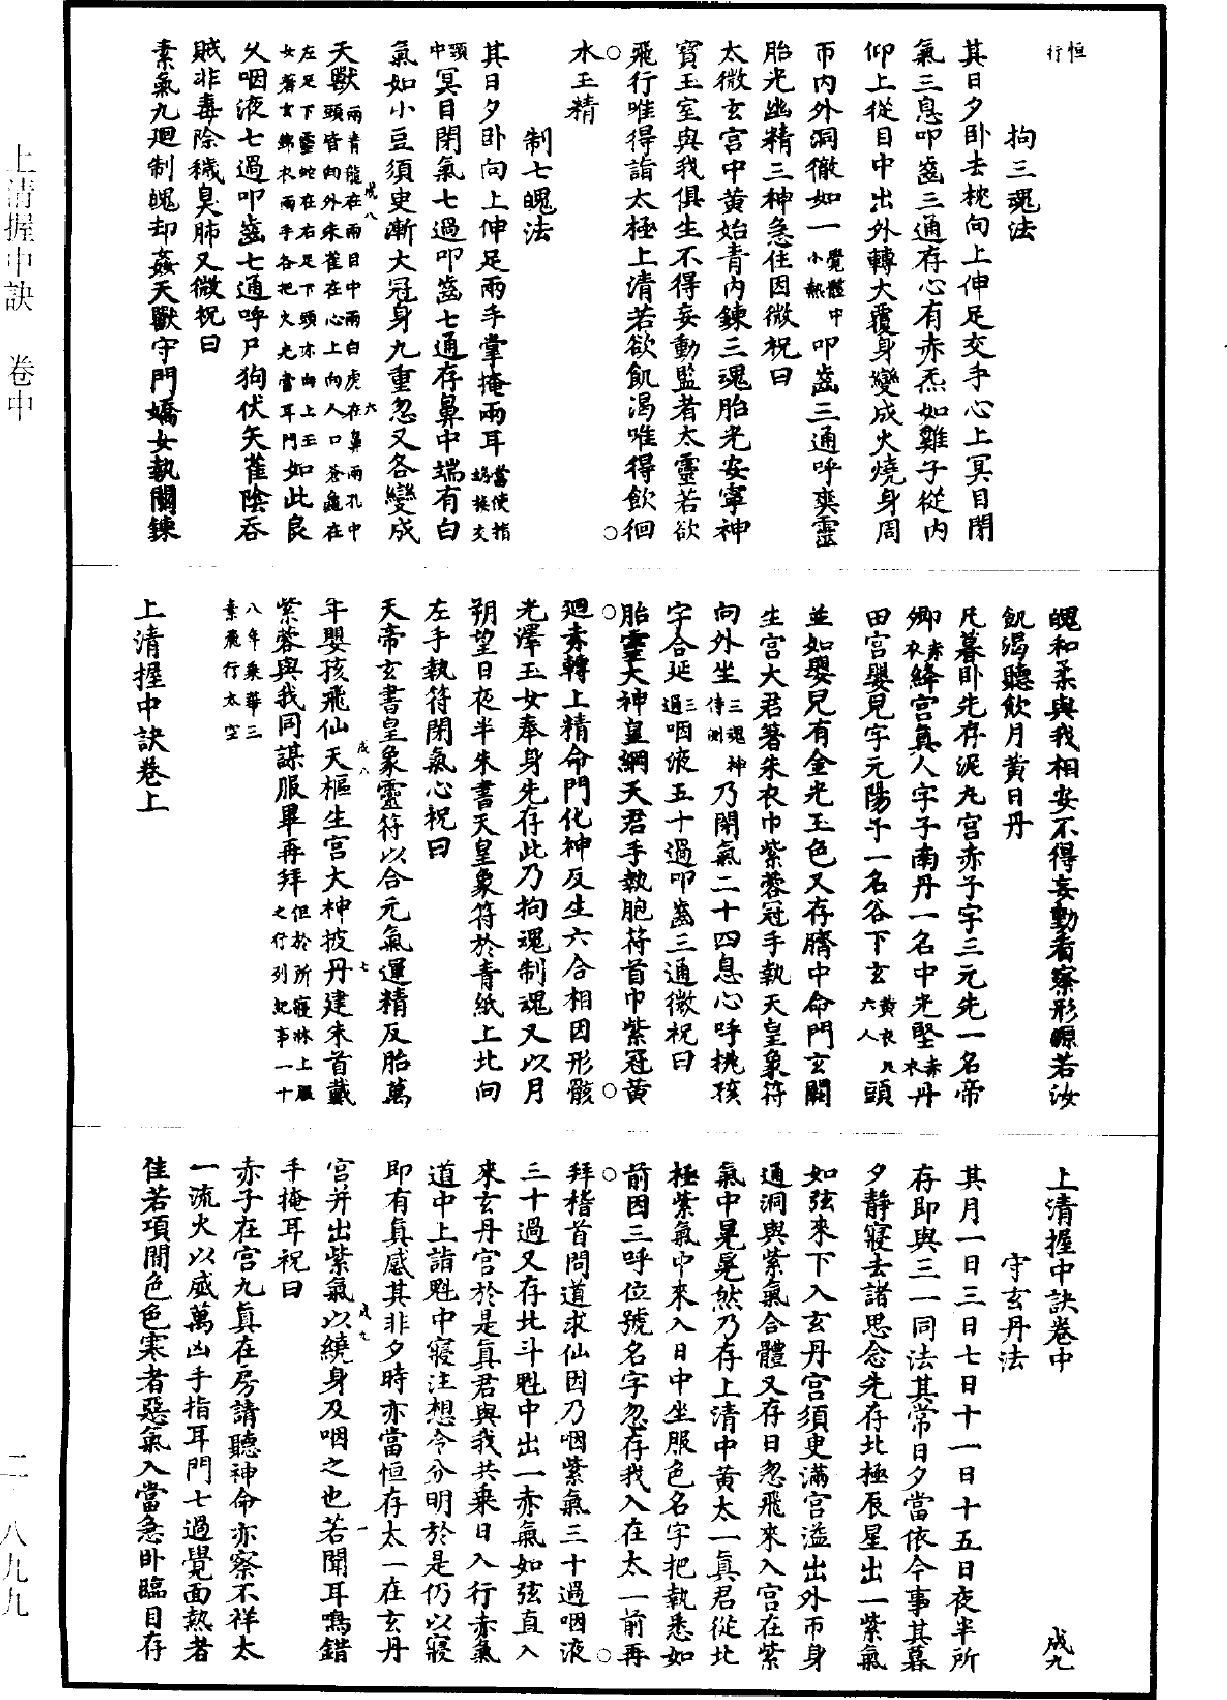 恒行
拘三魂法
其日夕卧去枕向上伸足交手心上冥目閉
氣三息叩齒三通存心有赤炁如雞子從內
仰上從目中出外轉大覆身變成火燒身周
帀內外洞徹如一覺體中小熱叩齒三通呼爽靈
胎光幽精三神急住因微祝曰
太微玄宮中黃始青內鍊三魂胎光安寧神
寶玉室與我俱生不得妄動監者太靈若欲
飛行唯得詣太極上清若欲飢渴唯得飲徊
水玉精
制七魄法
其日夕卧向上伸足兩手掌掩兩耳當使指端接交
頭中冥目閉氣七過叩齒七通存鼻中端有白
氣如小豆須臾漸大冠身九重忽又各變成
天獸兩青龍在兩目中兩白虎在鼻兩孔中頭皆向外朱雀在心上向人口蒼龜在
左足下靈蛇在右足下頭亦向上玉女著玄錦衣兩手各把火光當耳門如此良
久咽液七過叩齒七通呼尸狗伏矢雀陰吞
賊非毒除穢臭肺又微祝曰
素氣九迴制魄却姦天獸守門嬌女執關鍊
成八 六
魄和柔與我相安不得妄動看察形源若汝
飢渴聽飲月黃日丹
凡暮卧先存泥丸宮赤子字三元先一名帝
卿赤衣絳宮真人字子南丹一名中光堅赤衣丹
田宮嬰兒字元陽子一名谷下玄黃衣凡六人頭
並如嬰兒有金光玉色又存臍中命門玄關
生宮大君著朱衣巾紫蓉冠手執天皇象符
向外坐三魂神侍側乃閉氣二十四息心呼桃孩
字合延三過咽液五十過叩齒三通微祝曰
胎靈大神皇綱天君手執胞符首巾紫冠黃
迴素轉上精命門化神反生六合相因形骸
光澤玉女奉身先存此乃拘魂制魂又以月
朔望日夜半朱書天皇象符於青紙上北向
左手執符閉氣心祝曰
天帝玄書皇象靈符以合元氣運精反胎萬
年嬰孩飛仙天樞生宮大神披丹建朱首戴
紫蓉與我同謀服畢再拜但於所寢牀上服之行列紀事一十
八年乘華三素飛行太空
成八 七
上清握中訣卷上
上清握中訣卷中 成九
守玄丹法
其月一日三日七日十一日十五日夜半所
存即與三一同法其常日夕當依今事其暮
夕靜寢去諸思念先存北極辰星出一紫氣
如弦來下入玄丹宮須臾滿宮溢出外帀身
通洞與紫氣合體又存日忽飛來入宮在紫
氣中晃晃然乃存上清中黃太一真君從北
極紫氣中來入日中坐服色名字把執悉如
前因三呼位號名字忽存我入在太一前再
拜稽首問道求仙因乃咽紫氣三十過咽液
三十過又存北斗魁中出一赤氣如弦直入
來玄丹宮於是真君與我共乘日入行赤氣
道中上詣魁中寢注想令分明於是仍以寢
即有真感其非夕時亦當恒存太一在玄丹
宮并出紫氣以繞身及咽之也若聞耳鳴錯
手掩耳祝曰
赤子在宮九真在房請聽神命亦察不祥太
一流火以威萬凶手指耳門七過覺面熱者
佳若項間色色寒者惡氣入當急卧臨目存
成九 一
上清握中訣 卷中
二·八九九